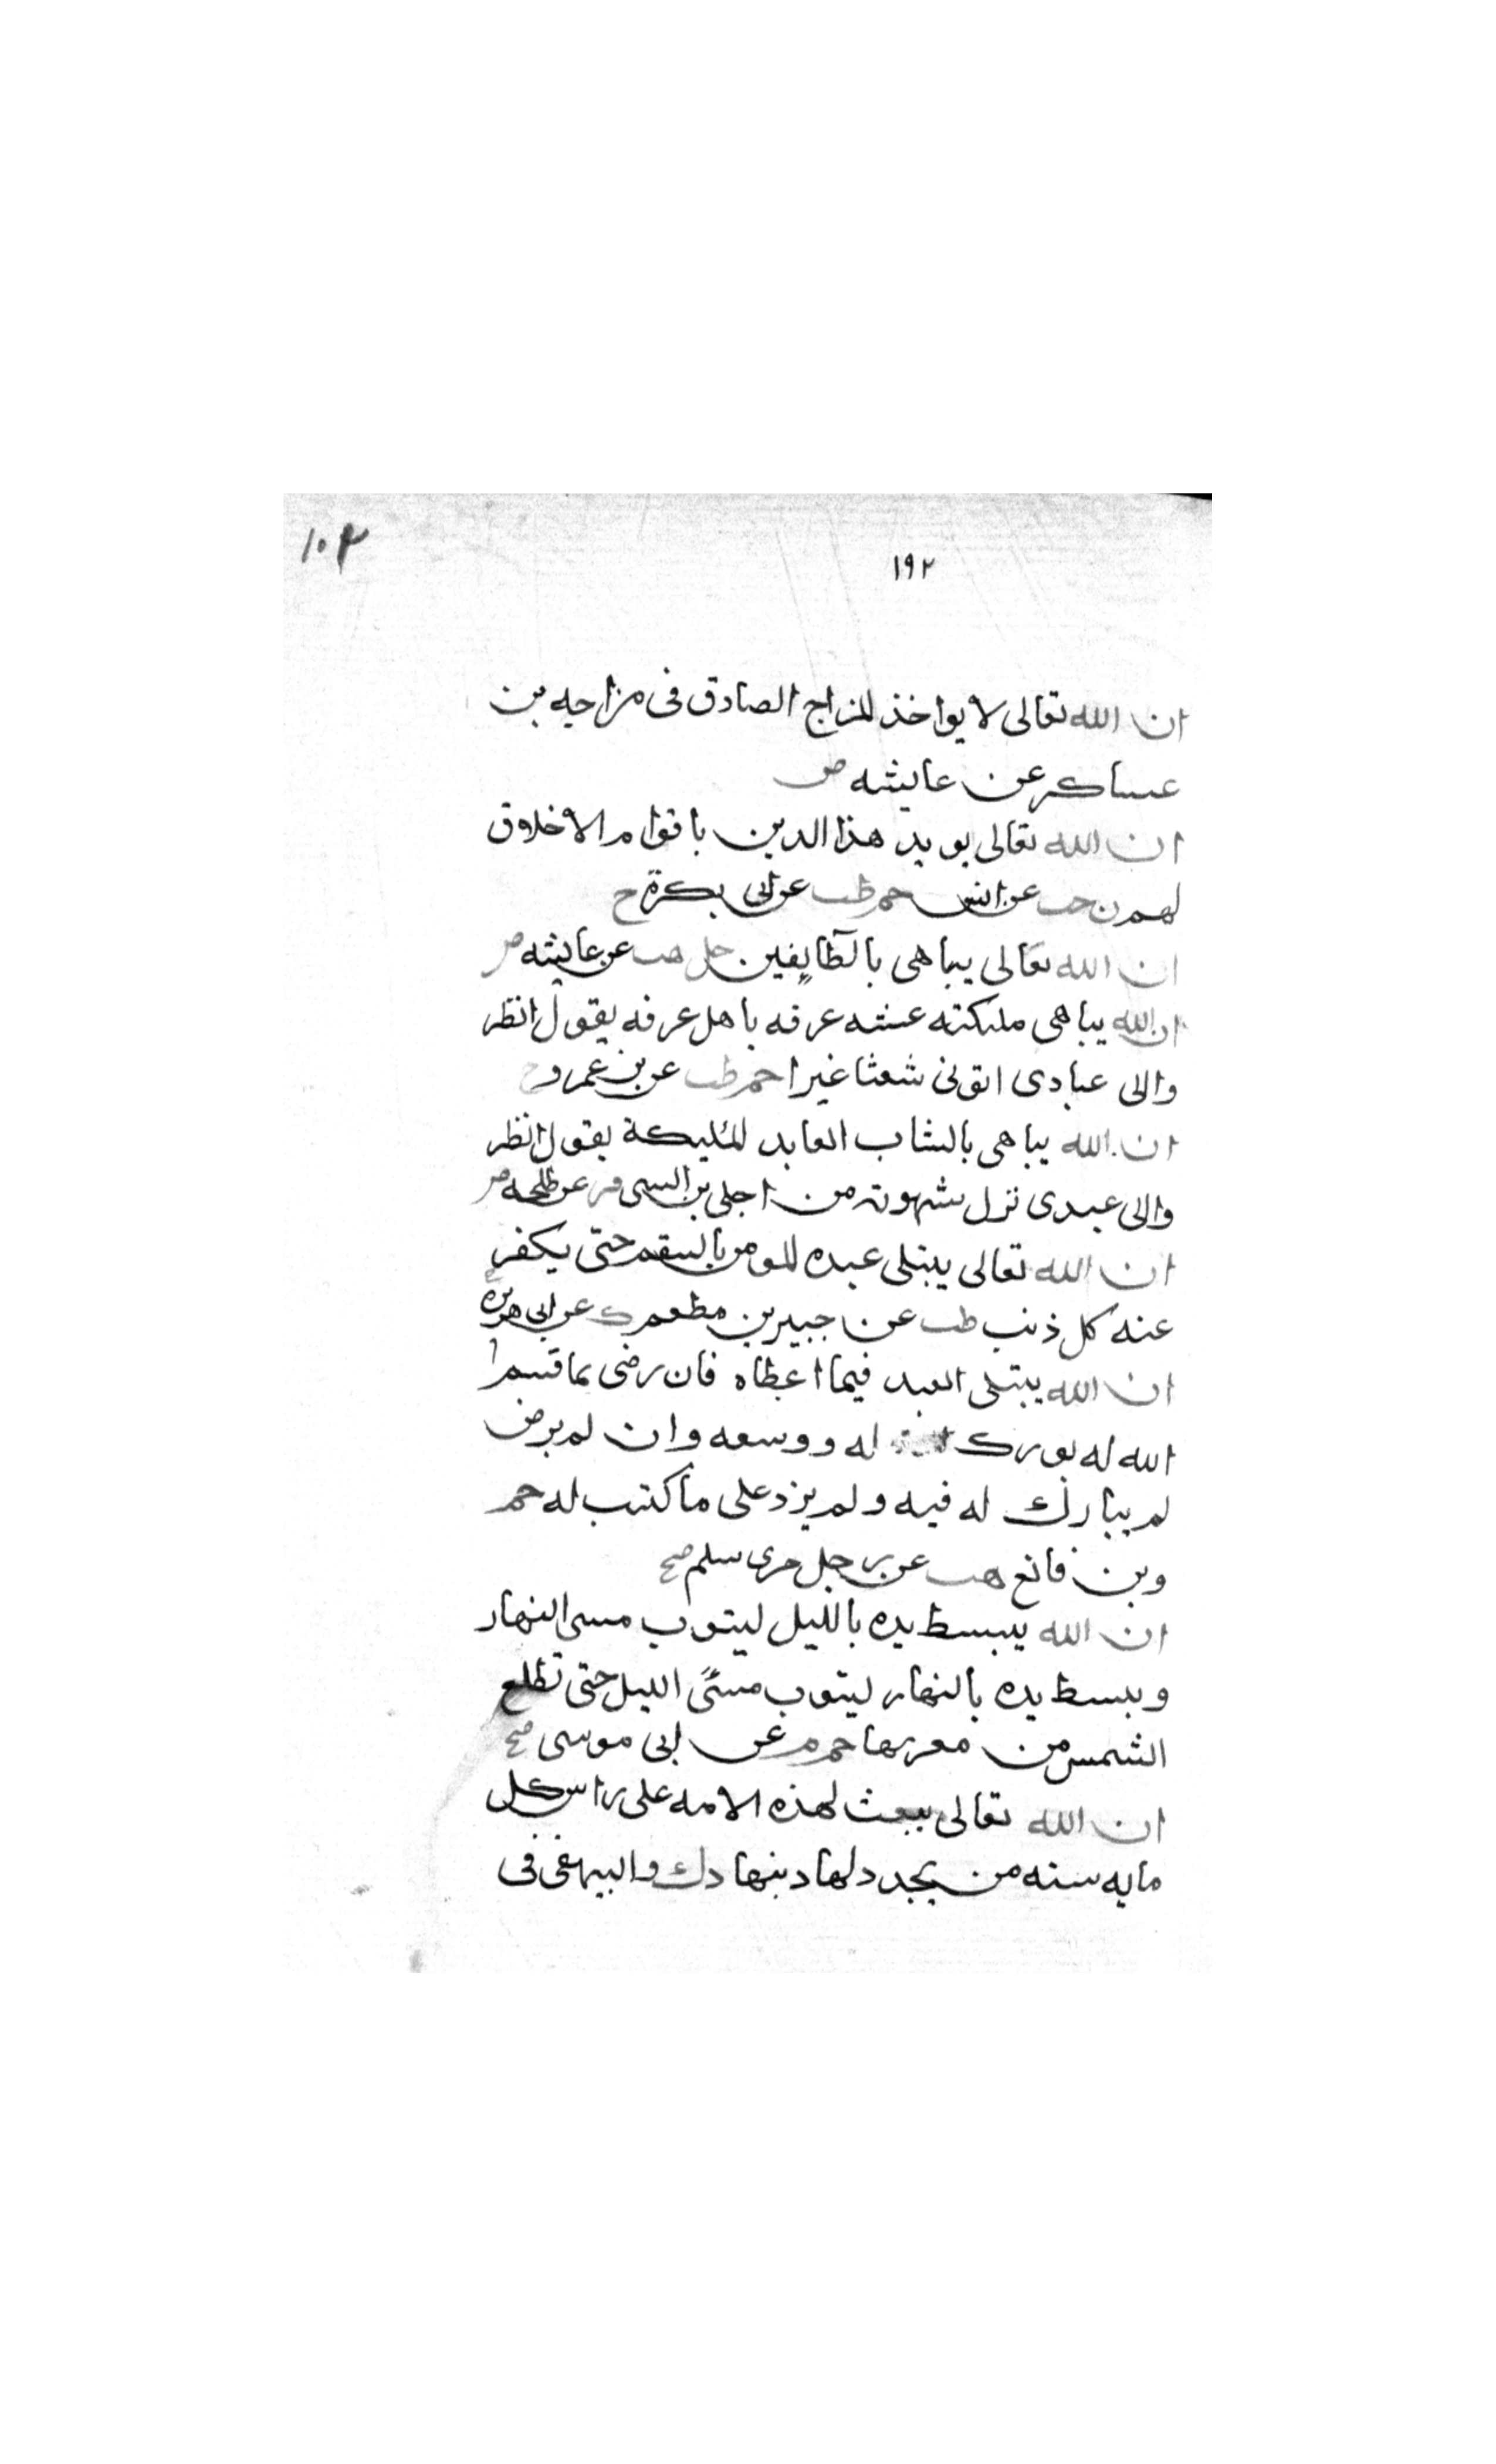 ١٠٣
١٩٢
ان الله تعالى لا يواخذ المزاح الصادق فى مزاحه بن
عساكر عن عايشه ض
ان الله تعالى يويد هذا الدين باقوام لا خلاق
لهم ن حب عن انس حم طب عن ابى بكرة ح
ان الله تعالى يباهى بالطايفين حل هب عن عايشه ض
ان الله يباهى مليكته عشيه عرفه باهل عرفه يقول انظر
والى عبادى اتونى شعثا غبرا حم طب عن بن عمرو ح
ان الله يباهى بالشاب العابد المليكة يقول انظر
والى عبدى ترك شهوته من اجلى بن السنى فر عن طلحه ض
ان الله تعالى يبتلى عبده المومن بالسقم حتى يكفر
عنه كل ذنب طب عن جبير بن مطعم ك عن ابى هريرة
ان الله يبتلى العبد فيما اعطاه فان رضى بما قسم ا
الله له بورك له ووسعه وان لم يرض
لم يبارك له فيه ولم يزد على ما كتب له حم
وبن قانع هب عن رجل من بنى سليم صح
ان الله يبسط يده بالليل ليتوب مسى النهار
ويبسط يده بالنهار ليتوب مسئ الليل حتى تطلع
الشمس من مغربها حم م عن ابى موسى صح
ان الله تعالى يبعث لهذه الامه على راس كل
مايه سنه من يجدد لها دينها د ك والبيهقى فى